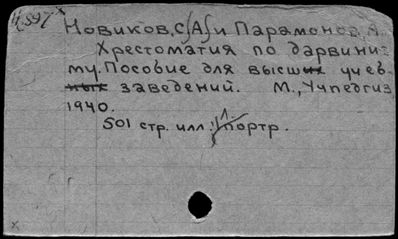 4597
Новиков, С.А. и Парамонов, А.
Хрестоматия по дарвиниз-
му. Пособие для высших учеб-
ных заведений. М., Учпедгиз,
1940.
501 стр. илл. 1 л. портр.